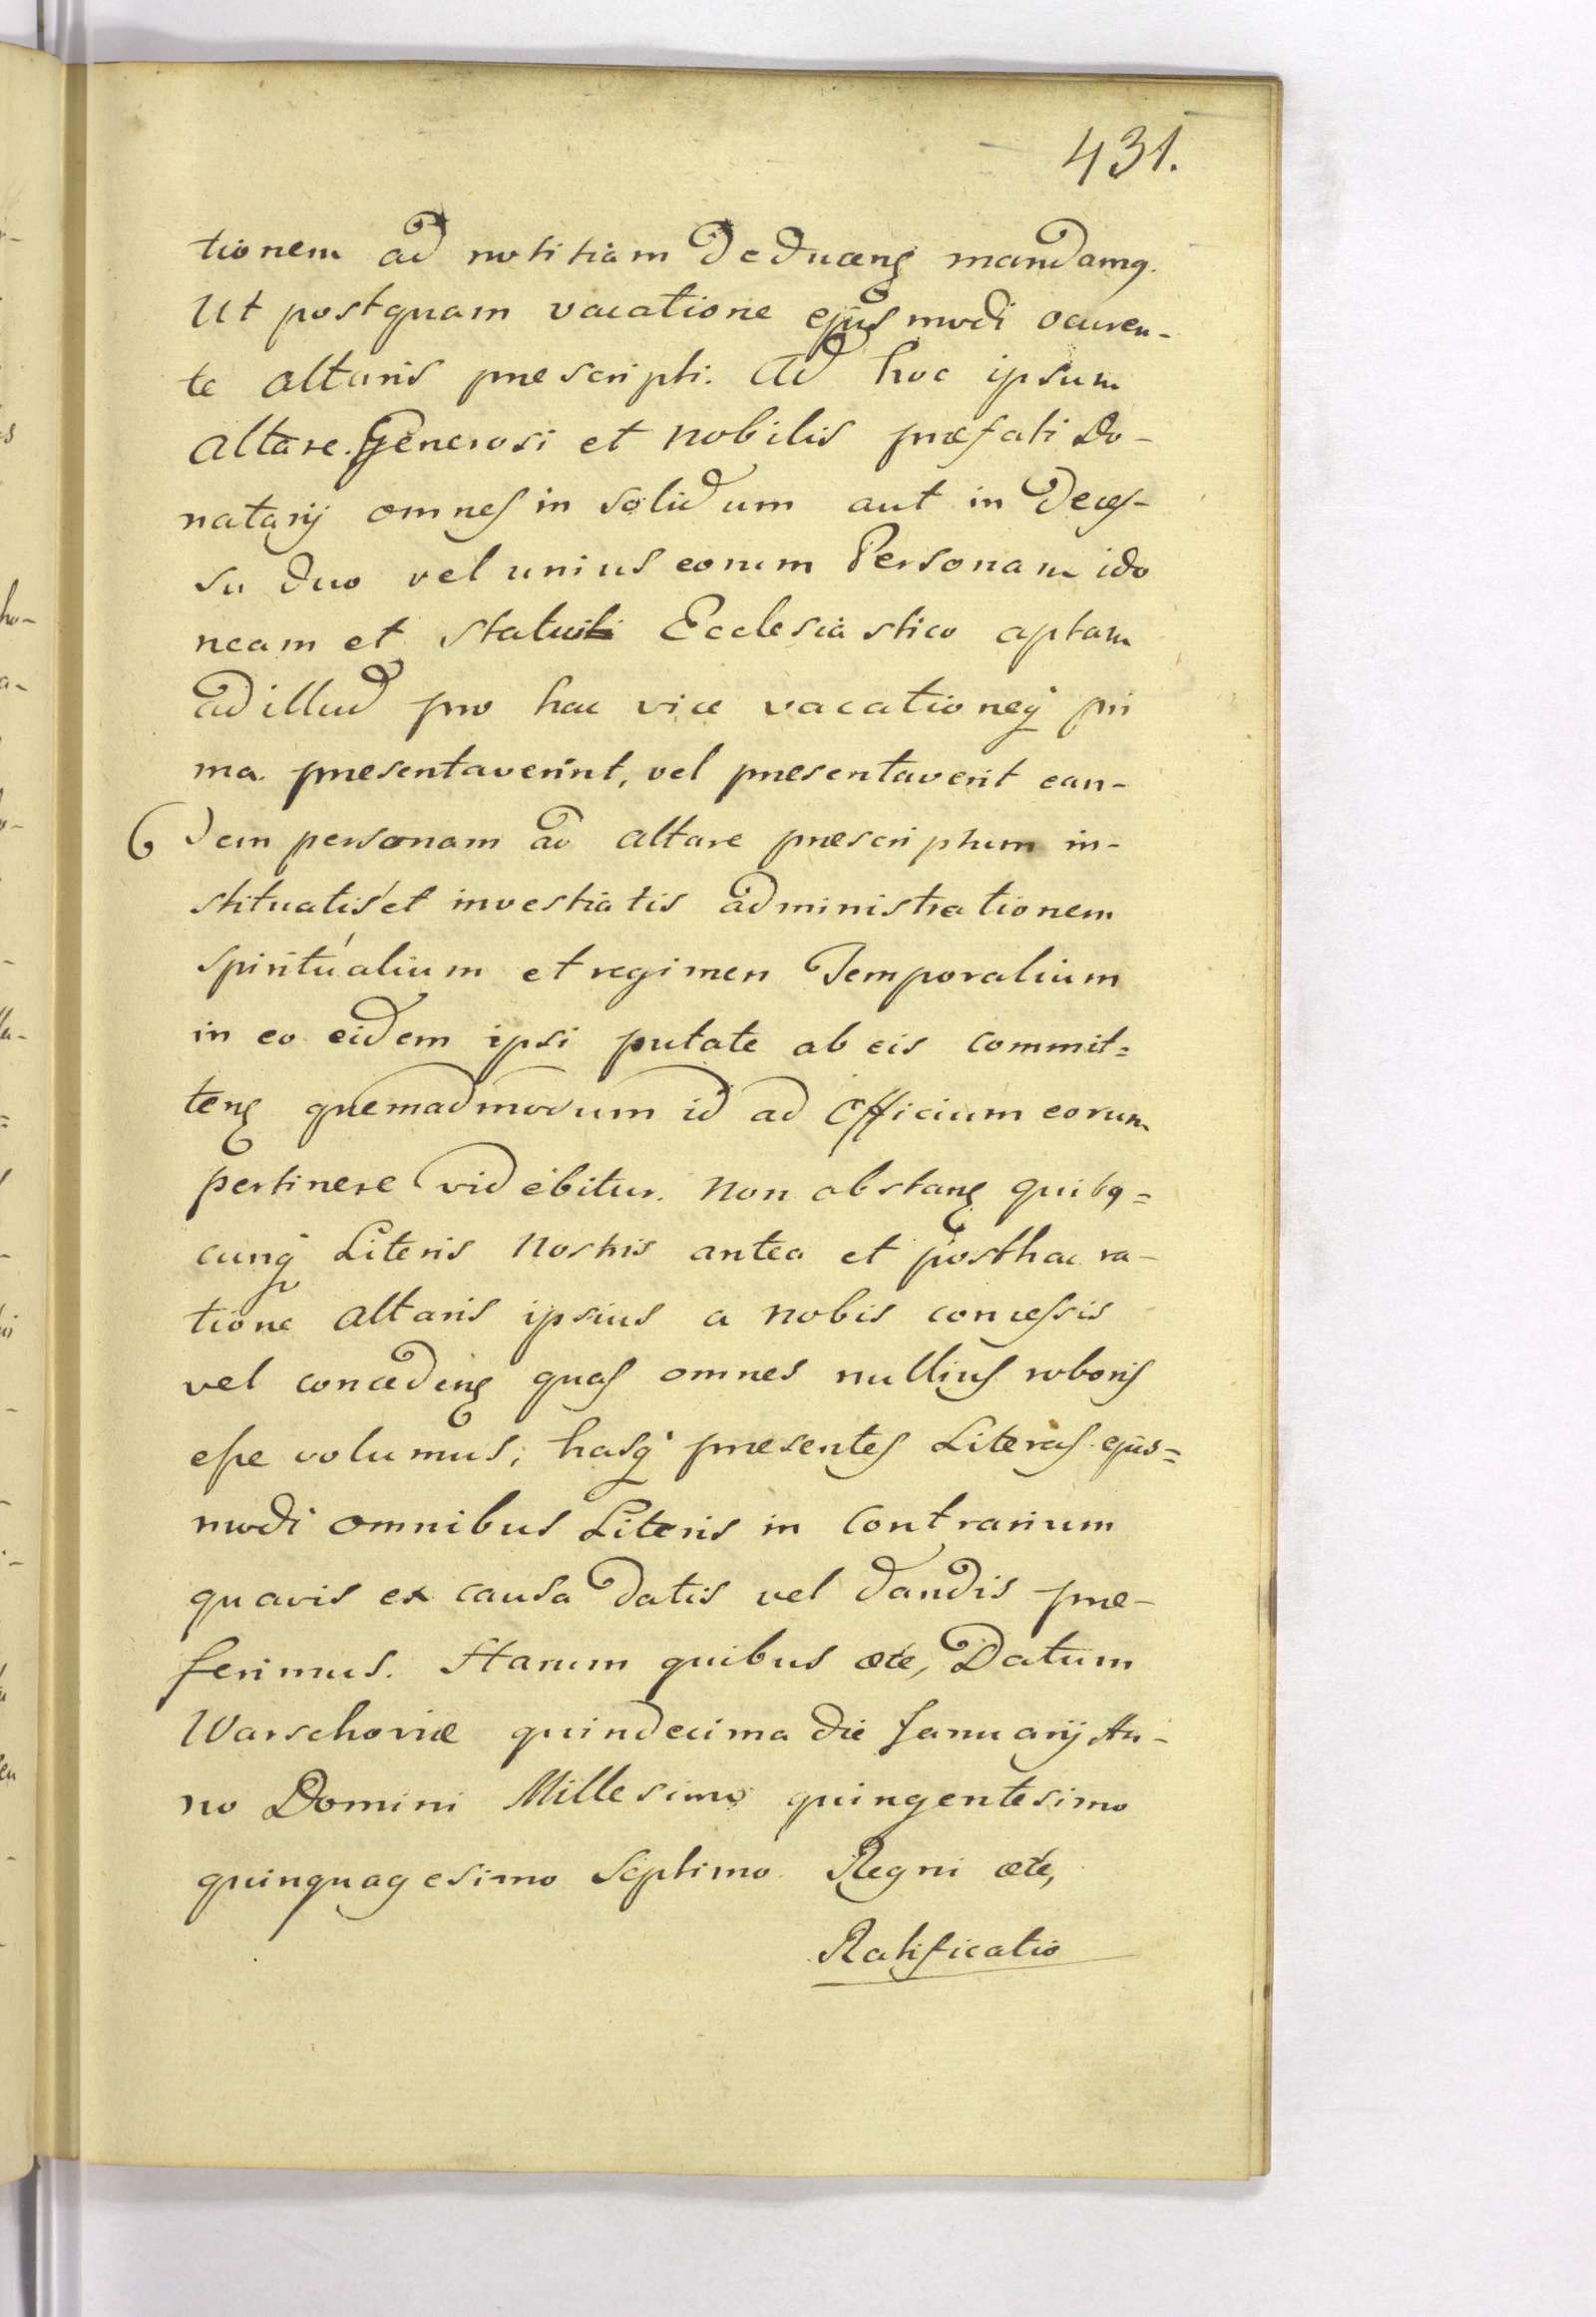 431.
tionem ad notitiam deducenς mandamq.
Ut postquam vacatione ejus modi ocuren-
te altaris prescripti. Ad hoc ipsum
altare. Generosi et Nobilis præfati Do-
natarij omnes in solidum aut in deces-
su duo vel unius eorum Personam ido
neam et statui Ecclesiastico aptam
ad illud pro hac vice vacationeq pri
ma. presentaverint, vel presentaverit ean-
dem personam ad altare prescriptum in-
stituatis et investiatis administrationem
spiritualium et regimen Temporalium
in eo eidem ipsi putate ab eis commit=
tenς quemadmodum id ad Officium eorum
pertinere videbitur. Non obstanς quibq=
cunq Literis Nostris antea et posthac ra-
tione altaris ipsius a nobis concessis
vel concedenς quas omnes nullius roboris
esse volumus; hasq presentes Literas ejus=
modi omnibus Literis in Contrarium
quavis ex causa datis vel dandis pre-
ferimus. Harum quibus etc, Datum
Warschoviæ quindecima die Januarij An-
no Domini Millesimo quingentesimo
quinquagesimo Septimo. Regni etc,
Ratificatio